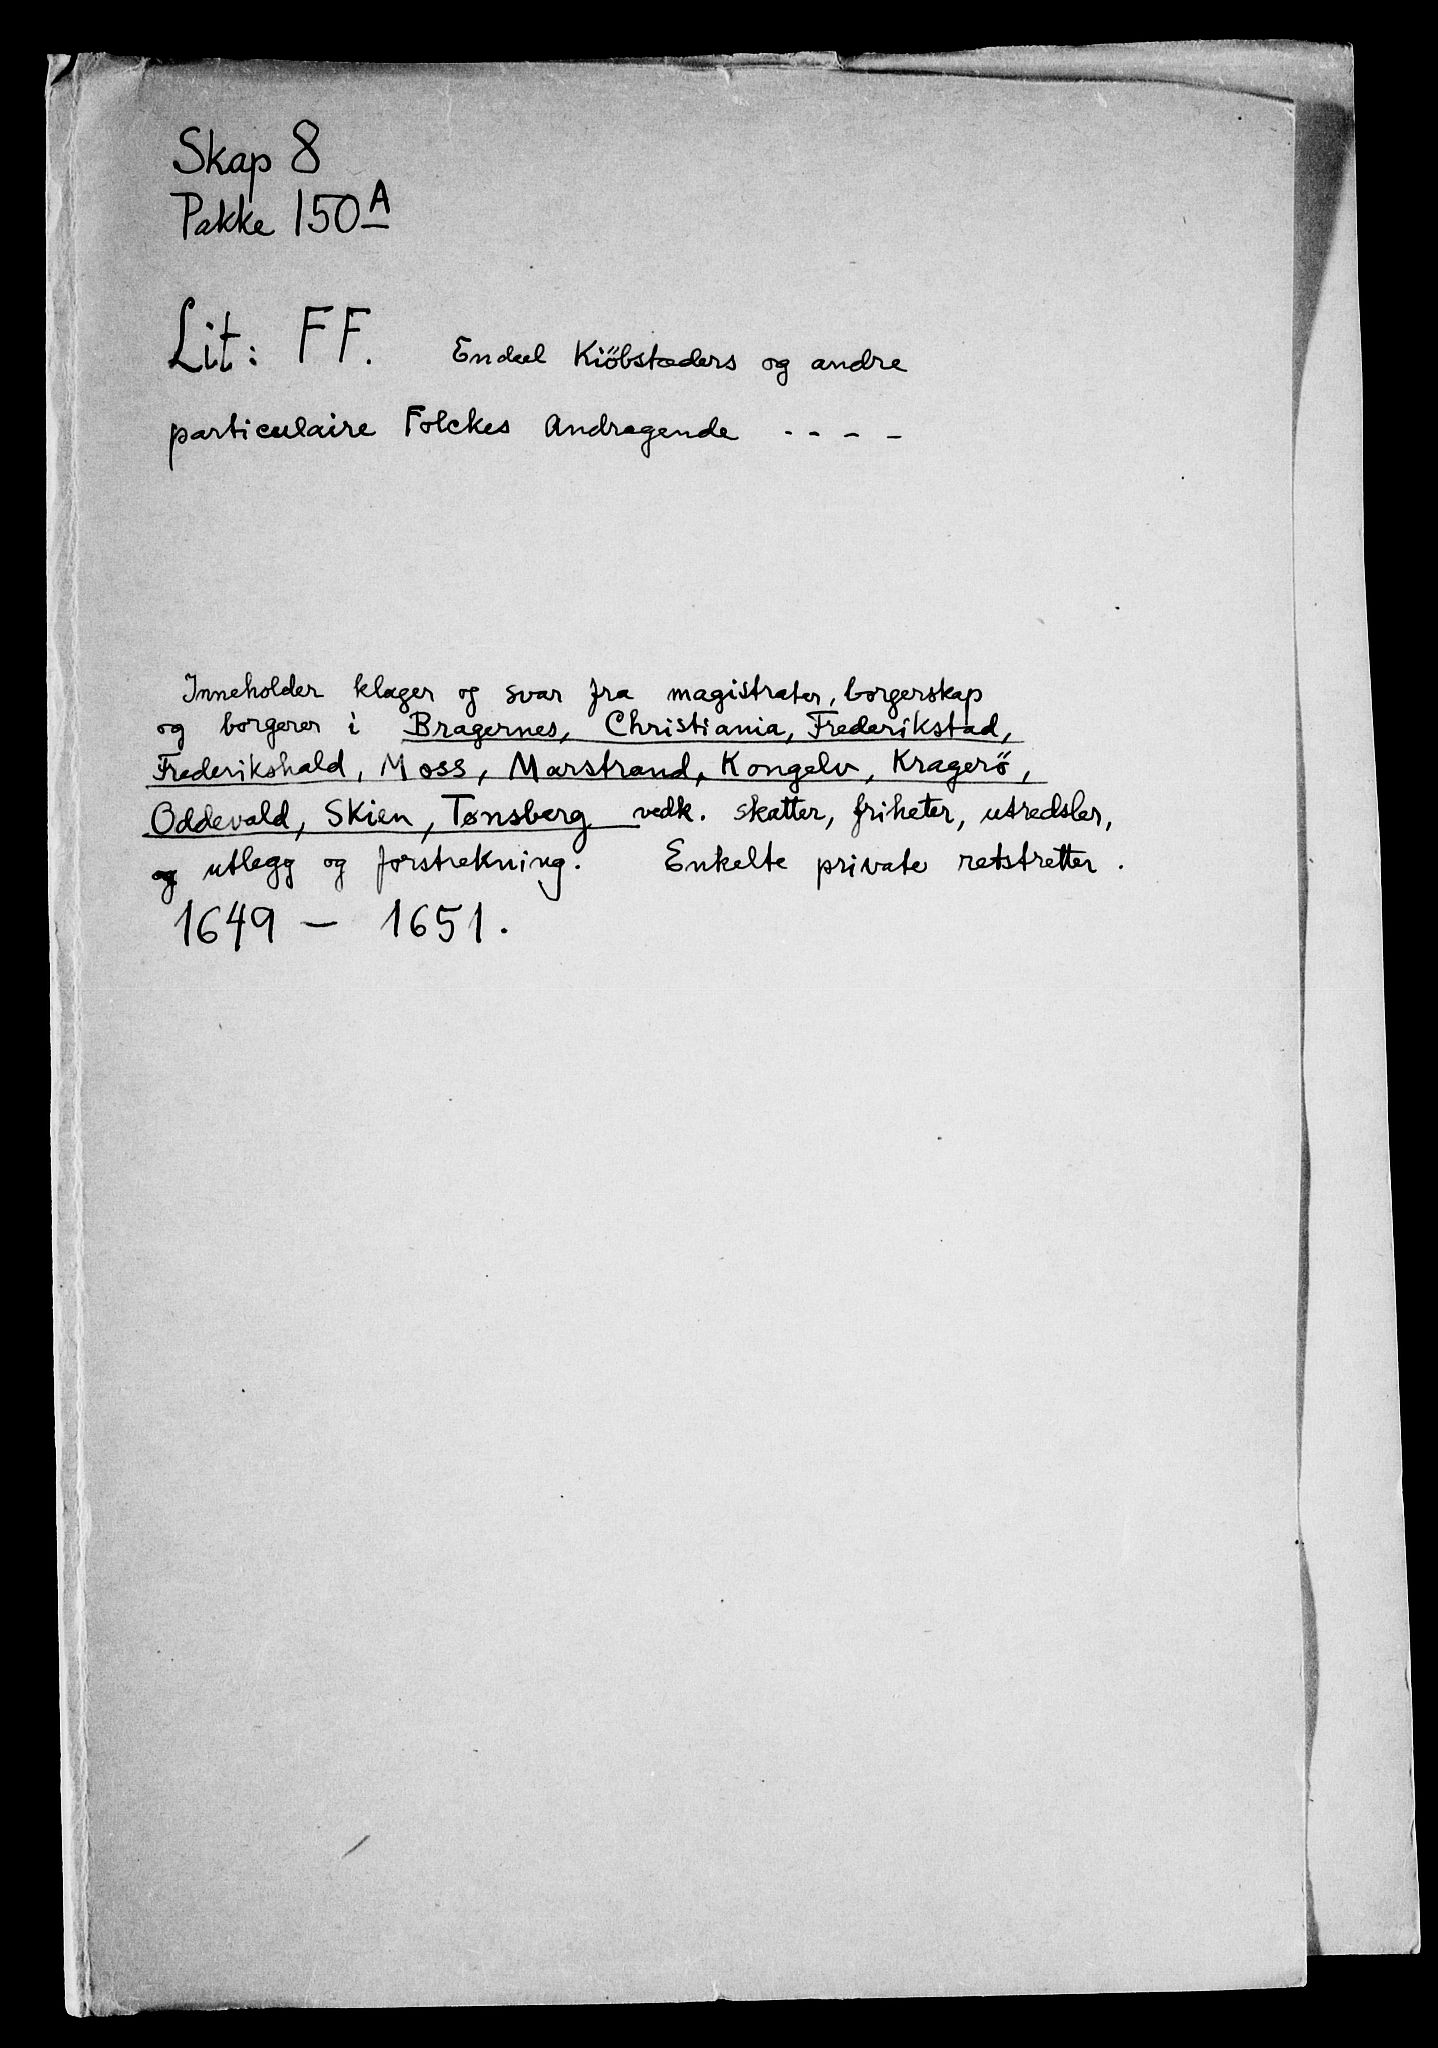 Skap 8
Pakke 150 A
Lit: FF. Endeel Kiöbstæders og andre
particulaire Folckes Andragende - - - -
Inneholder klager og svar fra magistrater, borgerskap
og borgerer i Bragernes, Christiania, Frederikstad,
Frederikshald, Moss, Marstrand, Kongelv, Kragerö,
Oddevald, Skien, Tønsberg vedk. skatter, friheter, utredsler,
og utlegg og forstrekning. Enkelte private retstretter.
1649 – 1651.